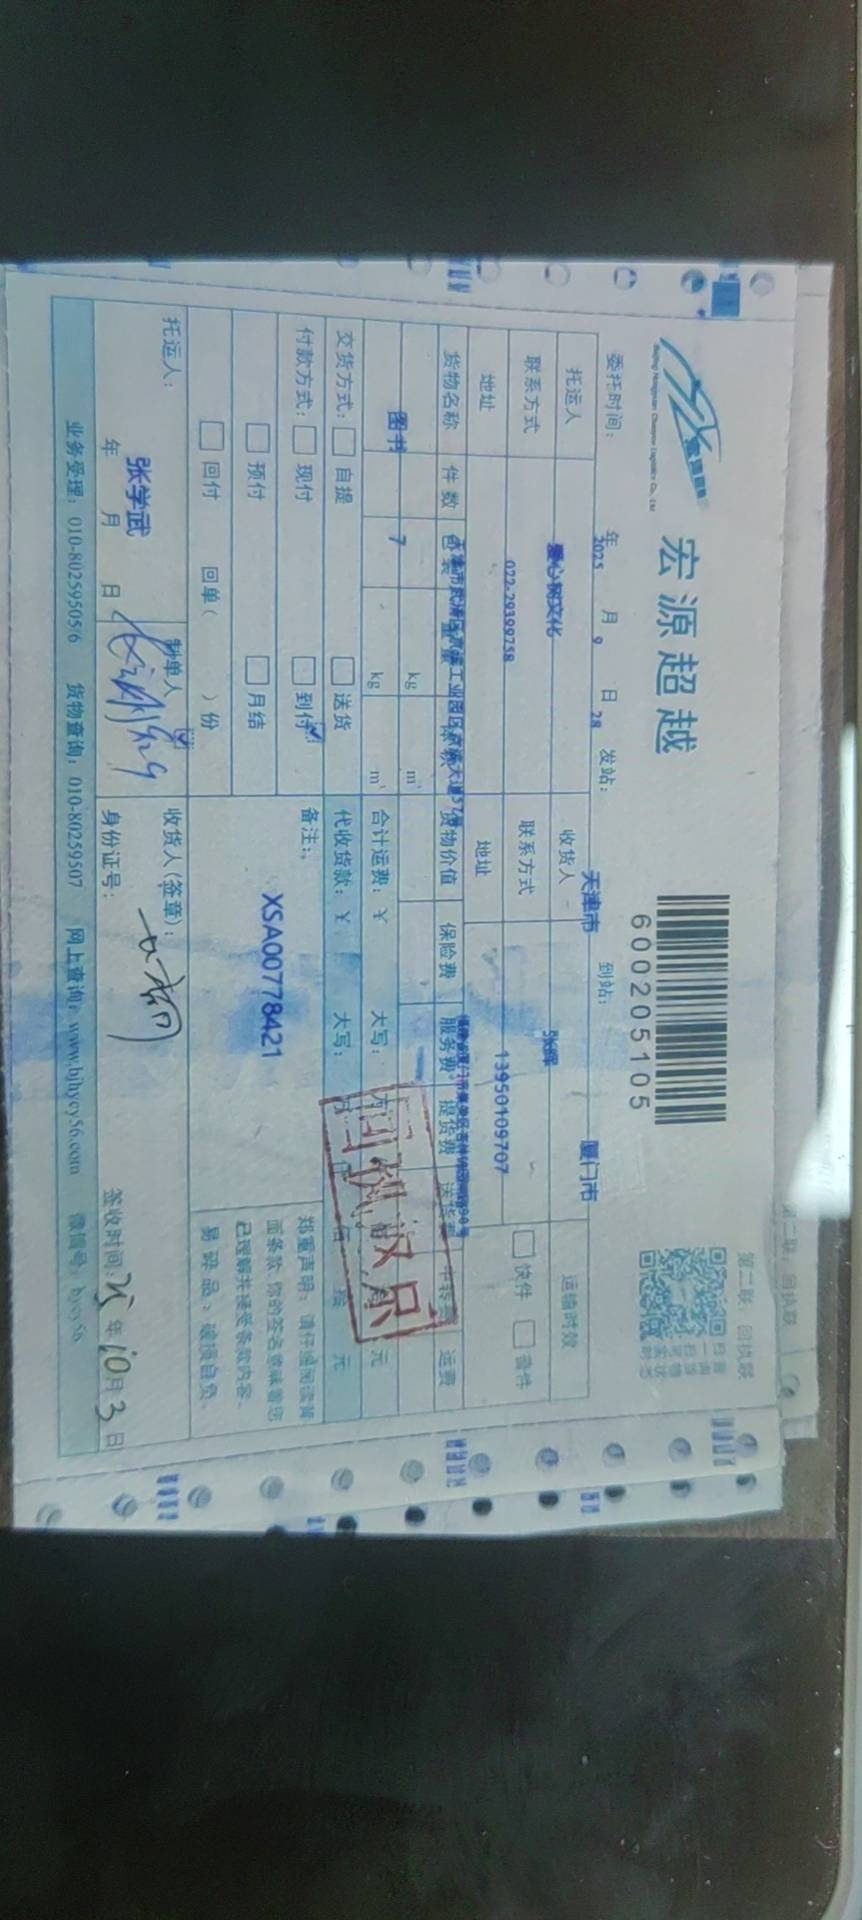 宏源超越
Beijing Hongyuan Chaoyue Logistics Co., Ltd.
600205105
第二联：回执联
委托时间：2025年9月28日 发站：天津市 到站：厦门市
托运人 爱心树文化 收货人 张辉 运输时效
联系方式 022-29399758 联系方式 13950109707 快件 普件
地址 天津市武清区 工业园区京滨大道 地址
货物名称 件数 包装 货物价值 保险费 服务费 提货费 送货费 中转费 运费
图书 7 kg m³
kg m³ 合计运费：¥ 大写：万 元
交货方式： 自提 送货 代收货款：¥ 大写： 佰 拾 元
付款方式： 现付 到付 备注：
预付 月结
回付 回单（ ）份
XSA00778421
回执议点
郑重声明：请仔细阅读背
面条款，你的签名意味着您
已理解并接受条款内容。
易碎品，破损自负。
托运人：张学武 制单人 收货人(签章)：
年 月 日 身份证号： 签收时间：25年10月3日
业务受理：010-80259505/6 货物查询：010-80259507 网上查询：www.bjhycy56.com 微信号：hycy56